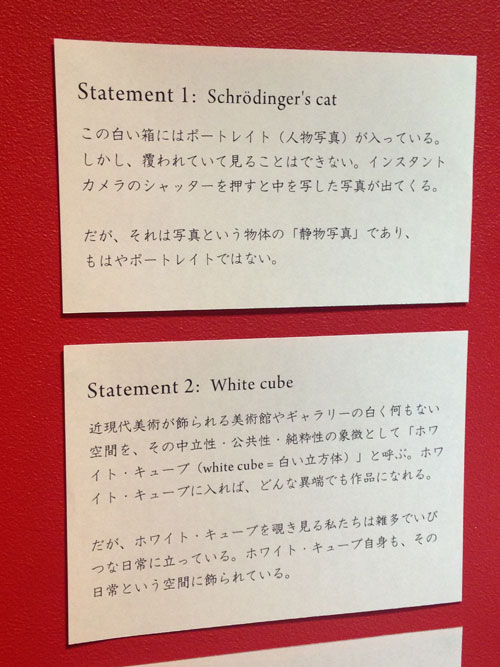 Statement 1: Schrödinger's cat
この白い箱にはポートレイト（人物写真）が入っている。
しかし、覆われていて見ることはできない。インスタント
カメラのシャッターを押すと中を写した写真が出てくる。
だが、それは写真という物体の「静物写真」であり、
もはやポートレイトではない。
Statement 2: White cube
近現代美術が飾られる美術館やギャラリーの白く何もない
空間を、その中立性・公共性・純粋性の象徴として「ホワ
イト・キューブ（white cube = 白い立方体）」と呼ぶ。ホワ
イト・キューブに入れば、どんな異端でも作品になれる。
だが、ホワイト・キューブを覗き見る私たちは雑多でいび
つな日常に立っている。ホワイト・キューブ自身も、その
日常という空間に飾られている。